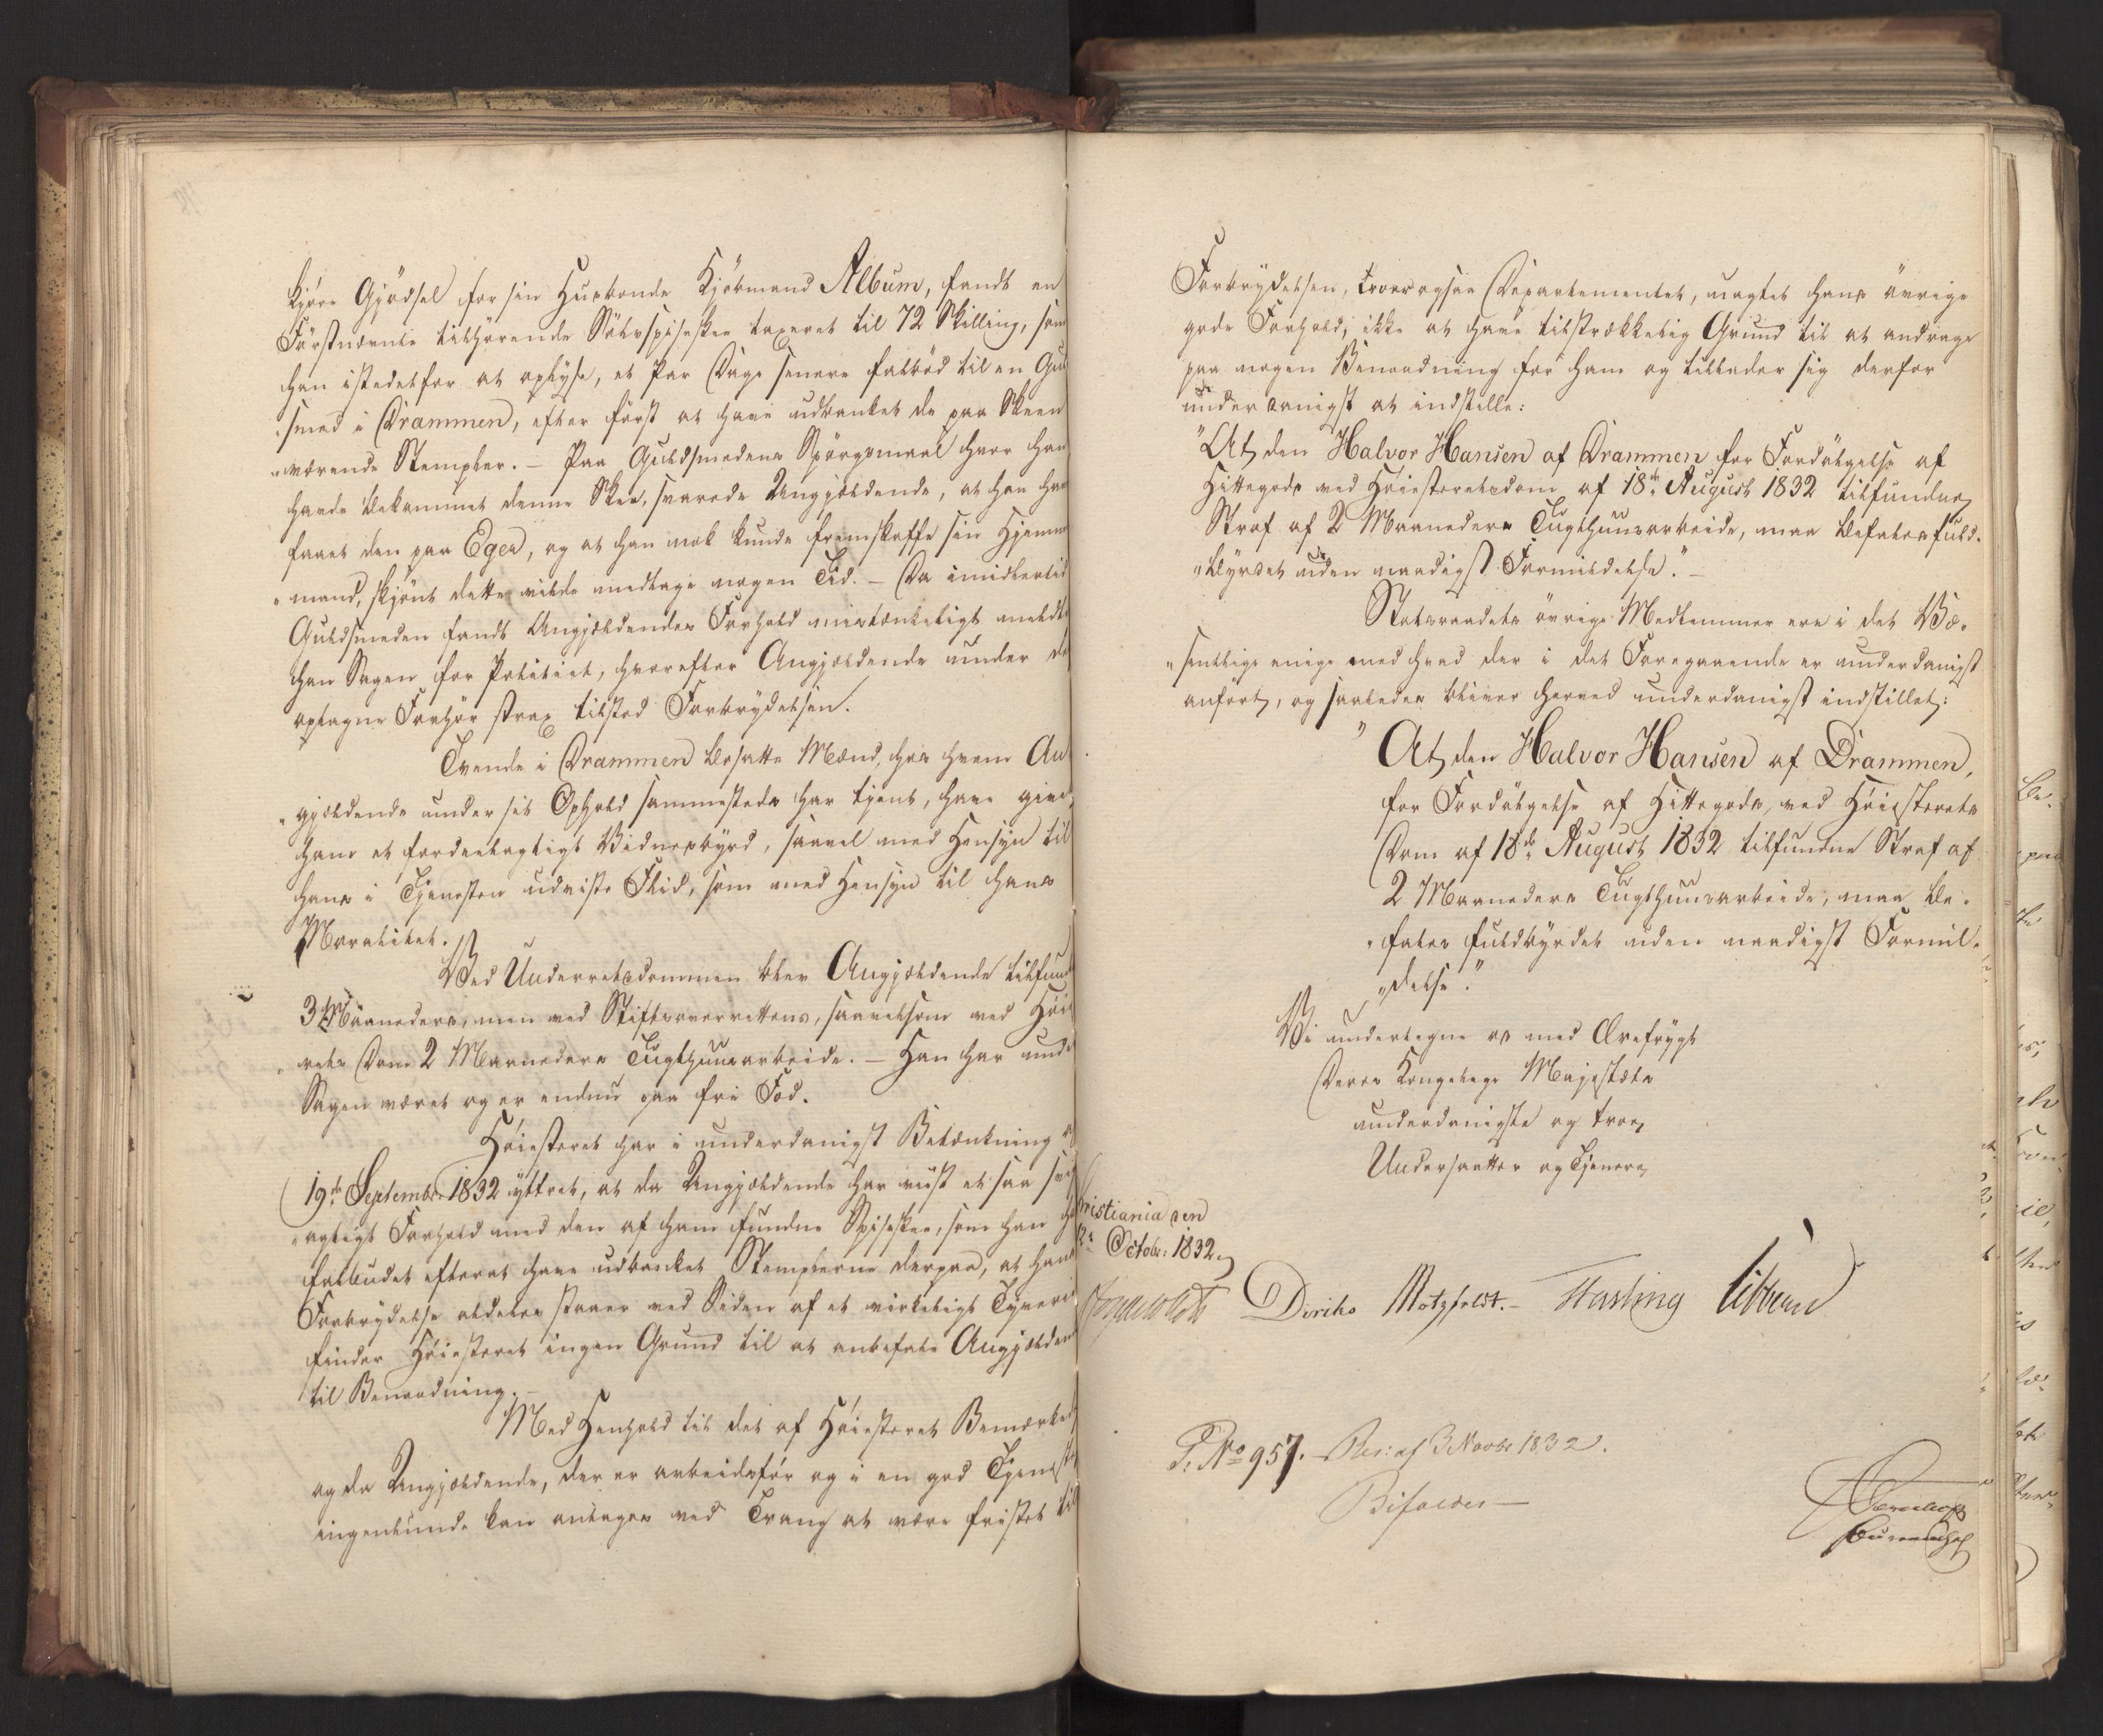 kjöre Gjödsel for sin Huusbonde Kjöbmand Album, fandt en
Förstnævnte tilhörende Sölvspiseskee taxeret til 72 Skilling, som
han istedetfor at oplyse, et Par Dage senere falböd til en Gul
smed i Drammen, efter först at have udbanket de paa Skeen
„værende Stempler. – Paa Guldsmedens Spörgsmaal hvor han
havde bekommet denne Skee, svarede Angjældende, at han havde
faaet den paa Eger, og at han nok kunde fremskaffe sin Hjemmels
„mand, skjönt dette vilde medtage nogen Tid. – Da imidlertid
Guldsmeden fandt Angjældendes Forhold mistænkeligt meldte
han Sagen for Politiet, hvorefter Angjældende under de
optagne Forhör strax tilstod Forbrydelsen.
Tvende i Drammen bosatte Mænd, hos hvem An
„gjældende under sit Ophold sammesteds har tjent, have givet
ham et fordeelagtigt Vidnesbyrd, saavel med Hensyn til
hans i Tjenesten udviste Flid, som med Hensyn til hans
Moralitet.
Ved Underretsdommen blev Angjældende tilfun
3 Maaneders, men ved Stiftsoverrettens, saavelsom ved Höie
„rets Dom 2 Maaneders Tugthuusarbeide. – Han har under
Sagen været og er endnu paa fri Fod.
Höiesteret har i underdanigst Betænkning af
19de September 1832 yttret, at da Angjældende har viist et saa svig
„agtigt Forhold med den af ham fundne Spiseskee, som han har
falbudet efterat have udbanket Stemplerne derpaa, at hans
Forbrydelse aldeles staaer ved Siden af et virkeligt Tyverie
finder Höiesteret ingen Grund til at anbefale Angjælden
til Benaadning. –
Med Henhold til det af Höiesteret Bemærkede
og da Angjældende, der er arbeidsför og i en god Tjeneste
ingenlunde kan antages ved Trang at være fristet til
Forbrydelsen, troer ogsaa Departementet, uagtet hans övrige
gode Forhold, ikke at have tilstrækkelig Grund til at andrage
paa nogen Benaadning for ham og tillader sig derfor
underdanigst at indstille:
"At den Halvor Hansen af Drammen for Fordölgelse af
Hittegods ved Höiesteretsdom af 18de August 1832 tilfundne
Straf af 2 Maaneders Tugthuusarbeide, maa befales fuld-
„byrdet uden naadigst Formildelse." –
Statsraadets övrige Medlemmer ere i det Væ-
„sentlige enige med hvad der i det Foregaaende er underdanigst
anført, og saaledes bliver herved underdanigst indstillet:
"At den Halvor Hansen af Drammen,
for Fordölgelse af Hittegods, ved Höiesterets
Dom af 18de August 1832 tilfundne Straf af
2 Maaneders Tugthuusarbeide, maa be-
„fales fuldbyrdet uden naadigst Formil-
„delse."
Vi undertegne os med Ærefrygt
Deres Kongelige Majestæts
underdanigste og troe
Undersaatter og Tjenere
ristiania den
Octobr: 1832.
Diriks Motzfeldt. – Fasting Vibbe
P: No 957. Res: af 3 Novbr 1832.
Bifaldes –